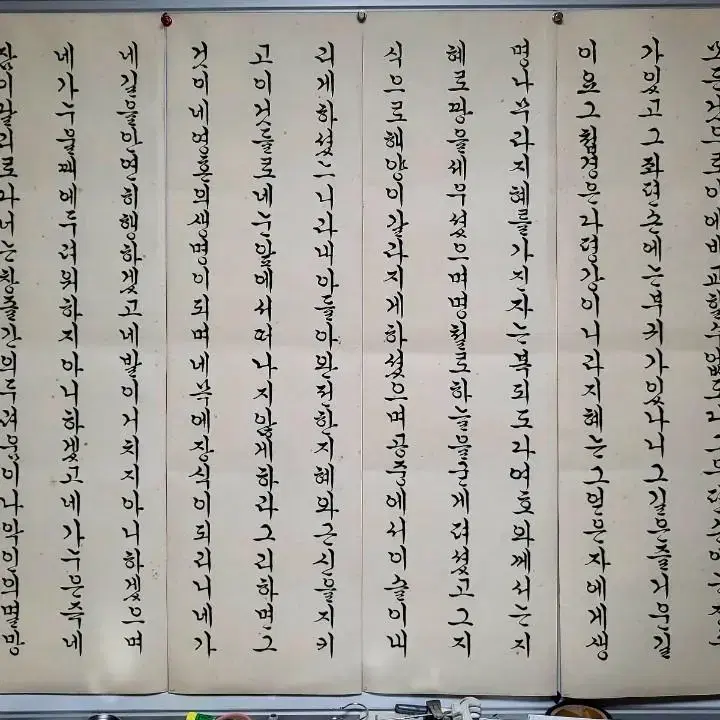 것으로이에비교할수없도다
가있고그좌편손에는부귀가있나니그길은즐거운길
이요그첩경은다평강이니라지혜는그얻은자에게생
명나무라지혜를가진자는복되도다여호와께서는지
혜로땅을세우셨으며명철로하늘을굳게펴셨고그지
식으로해양이갈라지게하셨으며공중에서이슬이내
리게하셨느니라내아들아완전한지혜와근신을지키
고이것들로네눈앞에서떠나지않게하라그리하면그
것이네영혼의생명이되며네목에장식이되리니네가
네길을안연히행하겠고네발이거치지아니하겠으며
네가누울때에두려워하지아니하겠고네가누운즉네
잠이달리로다너는창졸간의두려움이나악인의멸망